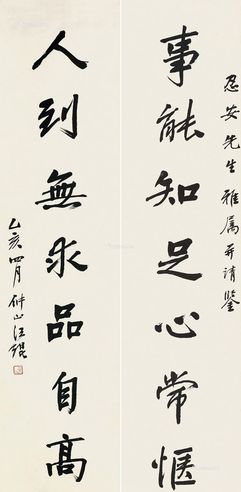 忍安先生雅属并請鑒
事能知足心常愜
人到無求品自高
乙亥四月仲山汪琨